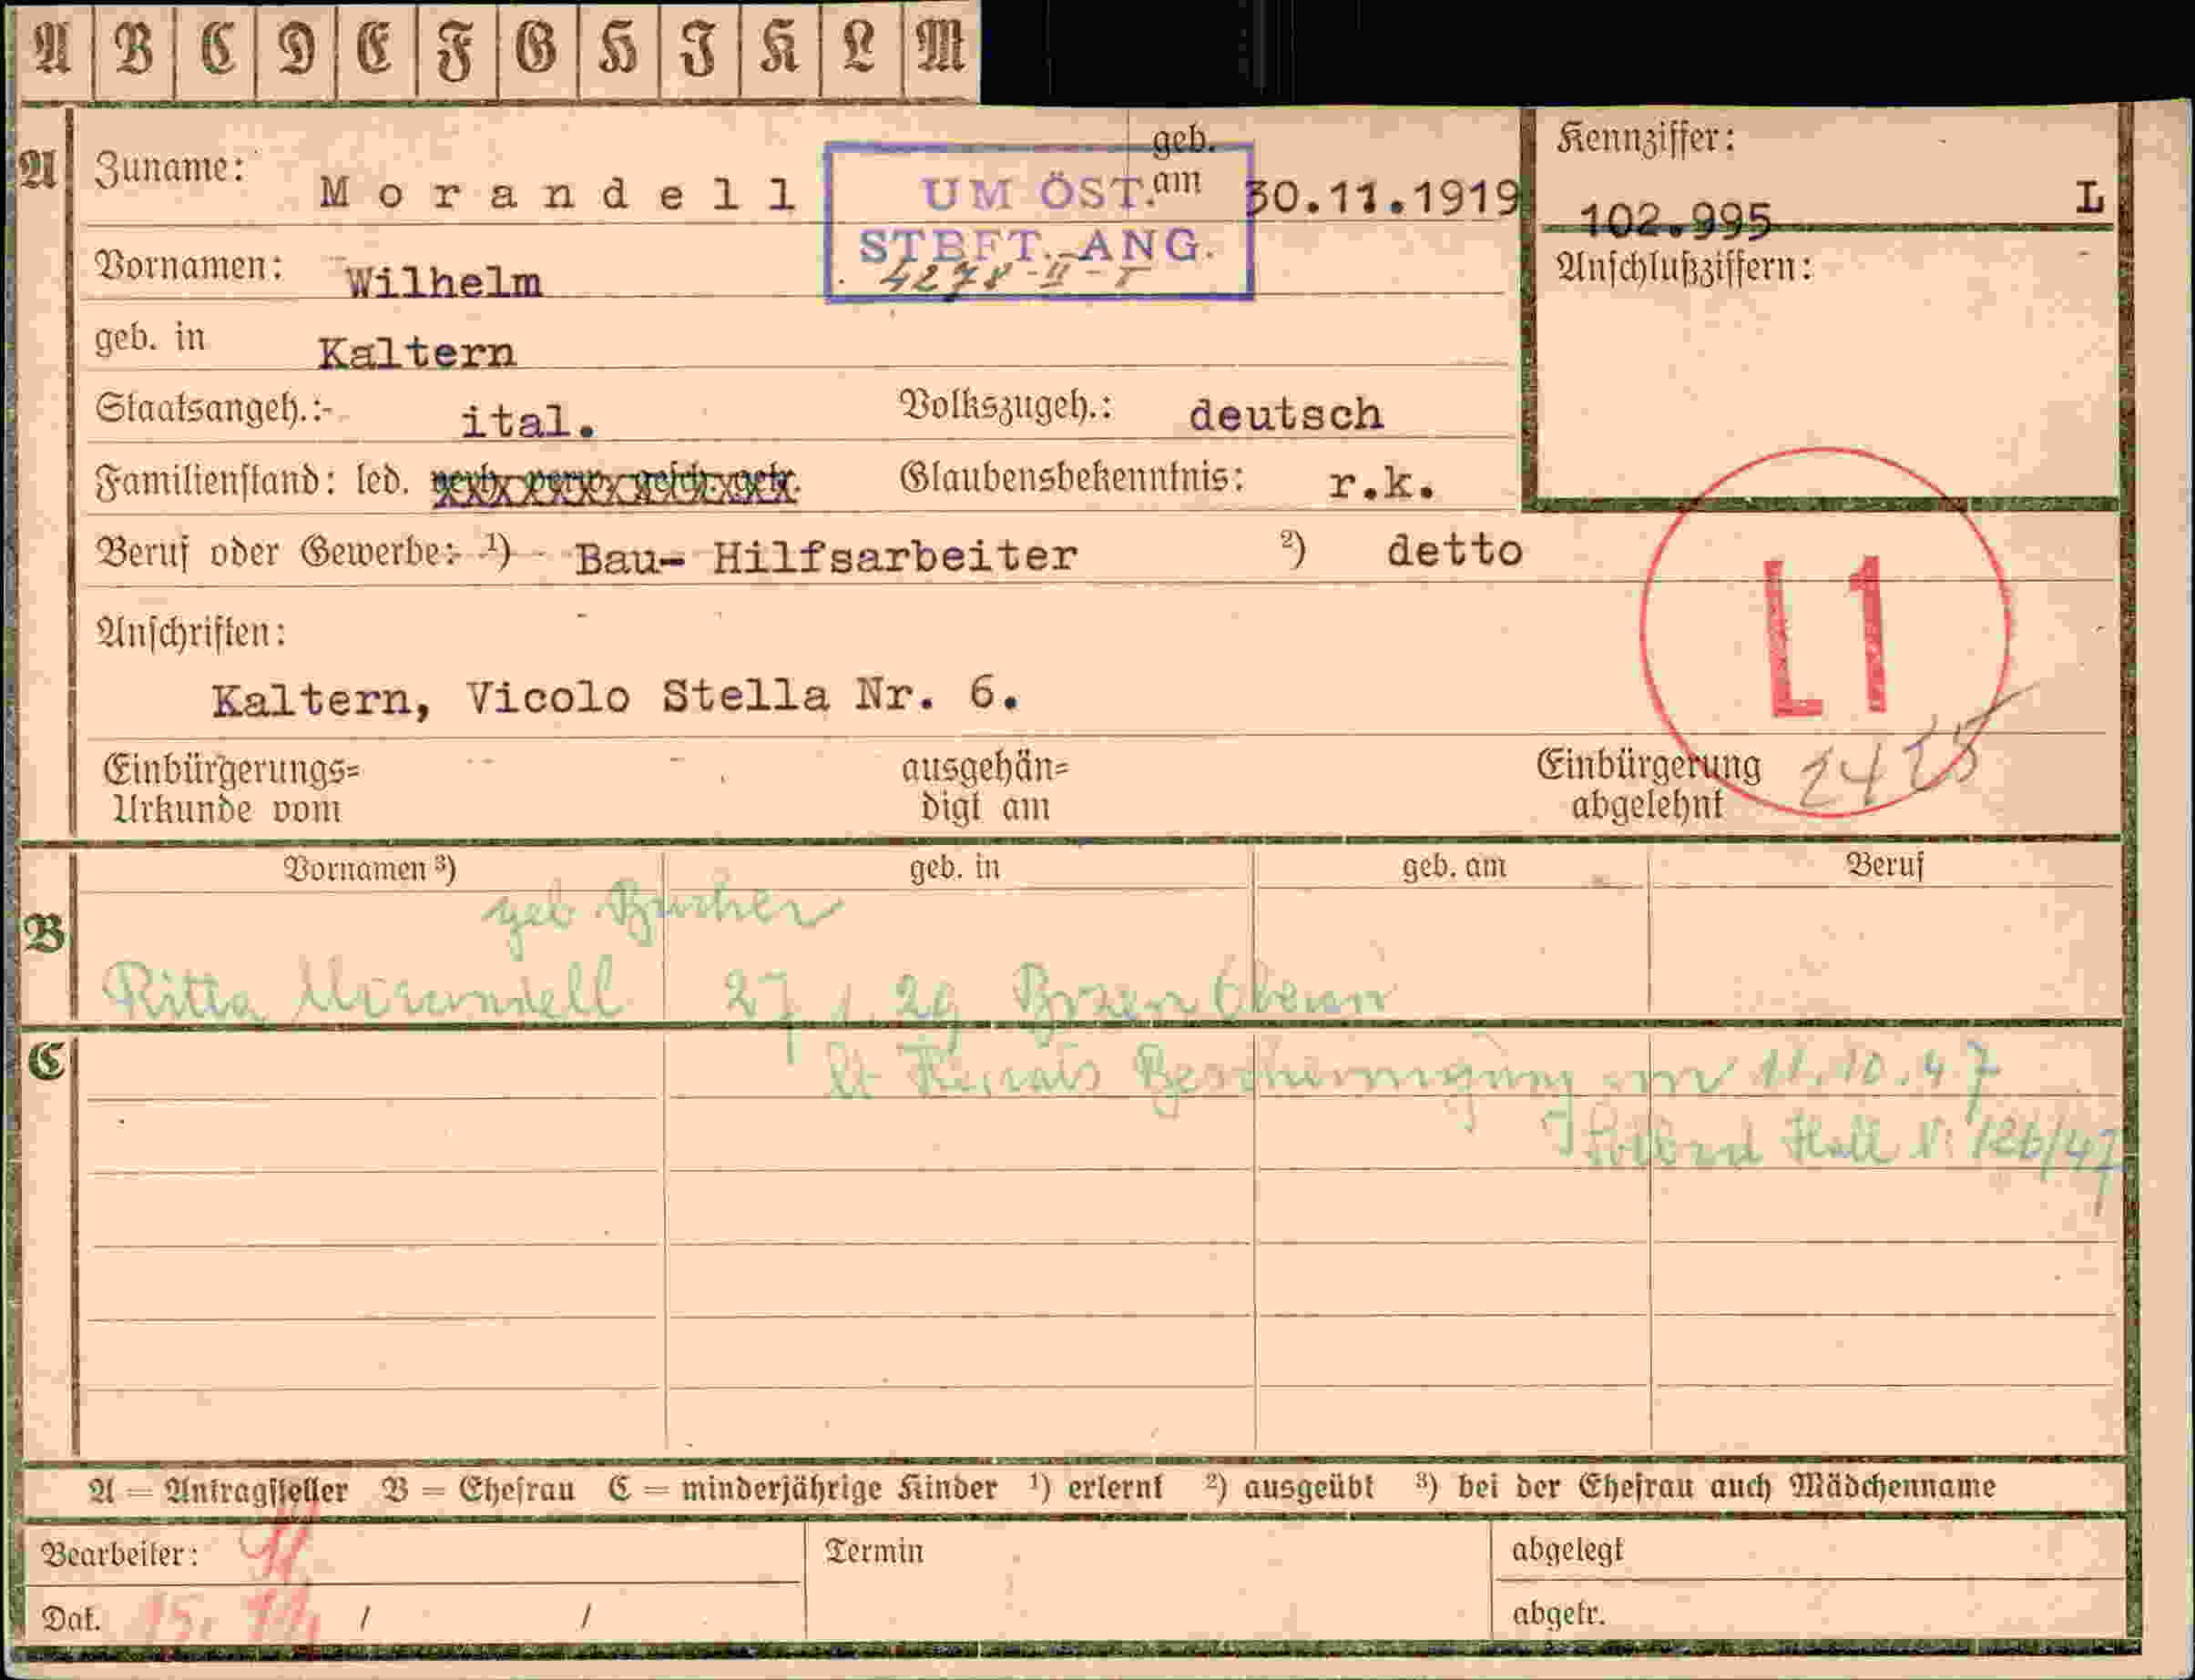 A B C D E F G H I K L M
A Zuname: Morandell geb. am 30.11.1919 Kennziffer:
UM ÖST. 102.995 L
STBFT.-ANG.
4278-II-T
Vornamen: Wilhelm Anschlußziffern:
geb. in Kaltern
Staatsangeh.: ital. Volkszugeh.: deutsch
Familienstand: led. verh. verw. gesch. getr. Glaubensbekenntnis: r.k.
Beruf oder Gewerbe: 1) Bau- Hilfsarbeiter 2) detto
L1
Anschriften:
Kaltern, Vicolo Stella Nr. 6.
Einbürgerungs= ausgehän= Einbürgerung
Urkunde vom digt am abgelehnt
Vornamen 3) geb. in geb. am Beruf
B geb Bucher
Ritta Morandell 27.1.29 Bozen
C lt Heirats Bescheinigung vom 11.10.47
Solbad Hall N. 126/47
A = Antragsteller B = Ehefrau C = minderjährige Kinder 1) erlernt 2) ausgeübt 3) bei der Ehefrau auch Mädchenname
Bearbeiter: Termin abgelegt
Dat. 15. / / abgetr.